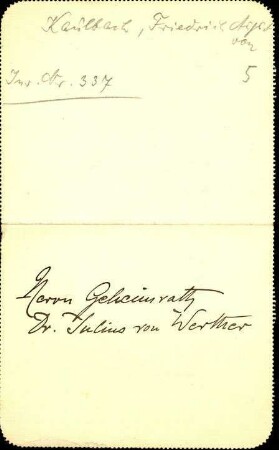 Kaulbach, Friedrich August
von
Inv. Nr. 337
5
Herrn Geheimrath
Dr. Julius von Werther